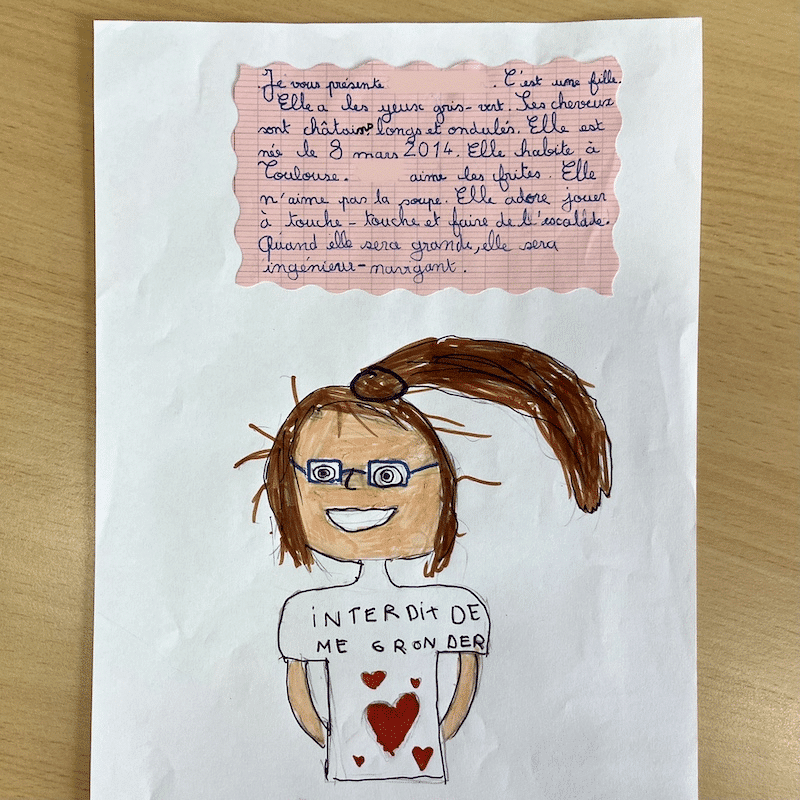 Je vous présente . C'est une fille.
Elle a les yeux gris-vert. Les cheveux
sont châtains longs et ondulés. Elle est
née le 8 mars 2014. Elle habite à
Toulouse. aime les frites. Elle
n'aime pas la soupe. Elle adore jouer
à touche-touche et faire de l'escalade.
Quand elle sera grande, elle sera
ingénieur-navigant.
INTERDIT DE
ME GRONDER